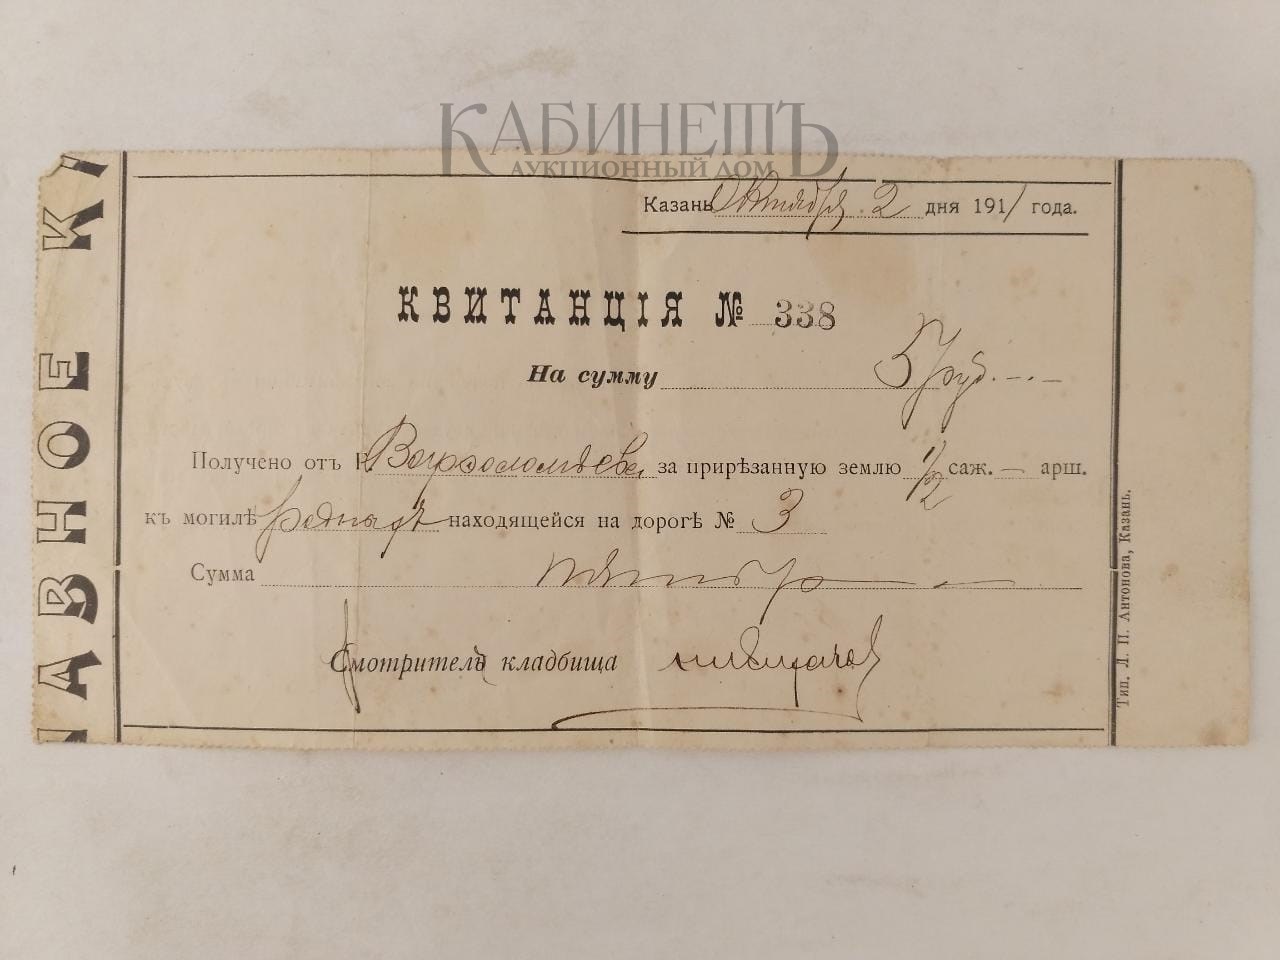 КАБИНЕТЪ
АУКЦИОННЫЙ ДОМ
Казань Октября 2 дня 1911 года.
КВИТАНЦІЯ № 338
На сумму 5 руб. -.-
Получено отъ Варѳоломѣева за прирѣзанную землю 1/2 саж. — арш.
къ могилѣ родныхъ находящейся на дорогѣ № 3
Сумма пять р — —
Смотритель кладбища
АВНОЕ К
Тип. Л. П. Антонова, Казань.